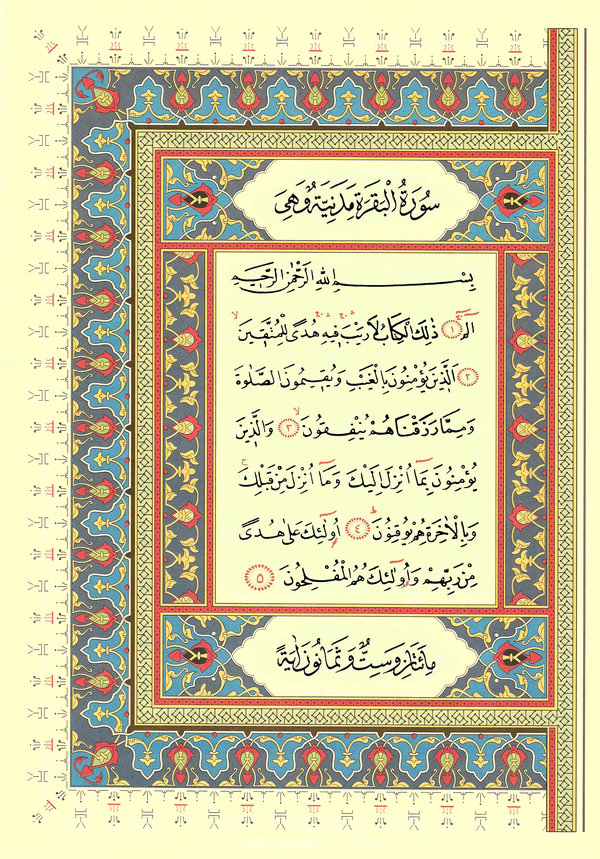 سُورَةُ الْبَقَرَةِ مَدَنِيَّةٌ وَهِيَ
بِسْمِ اللهِ الرَّحْمٰنِ الرَّحِيمِ
الٓمٓ ﴿١﴾ ذٰلِكَ الْكِتَابُ لَا رَيْبَ فِيهِ هُدًى لِلْمُتَّقِينَ
﴿٢﴾ اَلَّذِينَ يُؤْمِنُونَ بِالْغَيْبِ وَيُقِيمُونَ الصَّلٰوةَ
وَمِمَّا رَزَقْنَاهُمْ يُنْفِقُونَ ﴿٣﴾ وَالَّذِينَ
يُؤْمِنُونَ بِمَٓا اُنْزِلَ اِلَيْكَ وَمَٓا اُنْزِلَ مِنْ قَبْلِكَ
وَبِالْاٰخِرَةِ هُمْ يُوقِنُونَ ﴿٤﴾ اُو۬لٰٓئِكَ عَلٰى هُدًى
مِنْ رَبِّهِمْ وَاُو۬لٰٓئِكَ هُمُ الْمُفْلِحُونَ ﴿٥﴾
مِائَتَانِ وَسِتٌّ وَثَمَانُونَ اٰيَةً